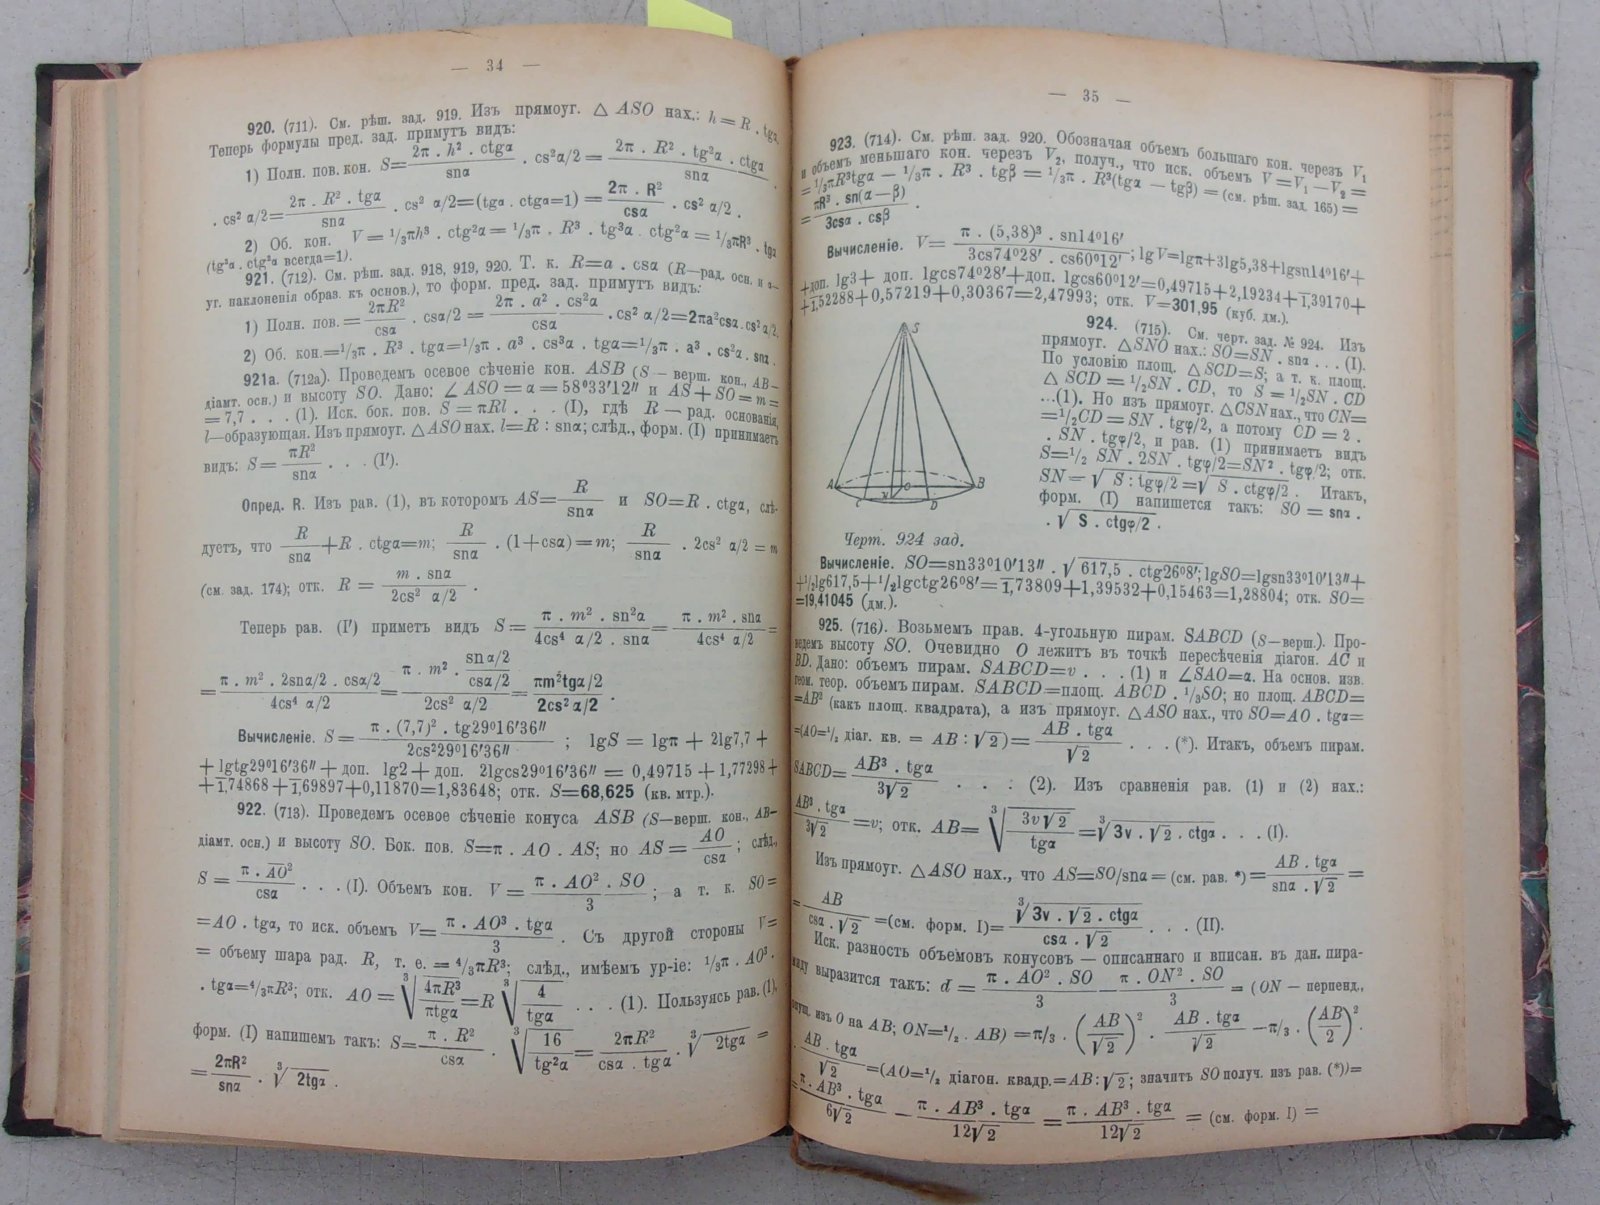 — 34 —
920. (711). См. рѣш. зад. 919. Изъ прямоуг. △ ASO нах.: h = R . tgα.
Теперь формулы пред. зад. примутъ видъ:
1) Полн. пов. кон. S= 2π . h² . ctgα / snα . cs²α/2 = 2π . R² . tg²α . ctgα / snα .
. cs² α/2= 2π . R² . tgα / snα . cs² α/2=(tgα . ctgα=1) = 2π . R² / csα . cs² α/2 .
2) Об. кон. V= ¹/₃πh³ . ctg²α= ¹/₃π . R³ . tg³α . ctg²α = ¹/₃πR³ . tgα
(tg²α . ctg²α всегда=1).
921. (712). См. рѣш. зад. 918, 919, 920. Т. к. R=a . csα (R—рад. осн. и α—
уг. наклоненія образ. къ основ.), то форм. пред. зад. примутъ видъ:
1) Полн. пов. = 2πR² / csα . csα/2 = 2π . a² . cs²α / csα . cs² α/2=2πa²csα . cs² α/2.
2) Об. кон.=¹/₃π . R³ . tgα=¹/₃π . a³ . cs³α . tgα=¹/₃π . a³ . cs²α . snα .
921a. (712a). Проведемъ осевое сѣченіе кон. ASB (S — верш. кон., AB—
діамт. осн.) и высоту SO. Дано: ∠ ASO = α = 58⁰33′12″ и AS + SO = m =
= 7,7 . . . (1). Иск. бок. пов. S = πRl . . . (I), гдѣ R — рад. основанія,
l—образующая. Изъ прямоуг. △ ASO нах. l=R : snα; слѣд., форм. (I) принимаетъ
видъ: S= πR² / snα . . . (I′).
Опред. R. Изъ рав. (1), въ которомъ AS= R / snα и SO=R . ctgα, слѣ-
дуетъ, что R / snα +R . ctgα=m; R / snα . (1+csα)=m; R / snα . 2cs² α/2 = m
(см. зад. 174); отк. R = m . snα / 2cs² α/2 .
Теперь рав. (I′) приметъ видъ S= π . m² . sn²α / 4cs⁴ α/2 . snα = π . m² . snα / 4cs⁴ α/2 =
= π . m² . 2snα/2 . csα/2 / 4cs⁴ α/2 = π . m² . snα/2 / csα/2 / 2cs² α/2 = πm²tgα/2 / 2cs² α/2 .
Вычисленіе. S= π . (7,7)² . tg29⁰16′36″ / 2cs²29⁰16′36″ ; lgS = lgπ + 2lg7,7 +
+ lgtg29⁰16′36″ + доп. lg2 + доп. 2lgcs29⁰16′36″ = 0,49715 + 1,77298 +
+ 1̅,74868 + 1̅,69897+0,11870=1,83648; отк. S=68,625 (кв. мтр.).
922. (713). Проведемъ осевое сѣченіе конуса ASB (S—верш. кон., AB—
діамт. осн.) и высоту SO. Бок. пов. S=π . AO . AS; но AS = AO / csα ; слѣд.,
S = π . AO² / csα . . . (I). Объемъ кон. V = π . AO² . SO / 3 ; а т. к. SO=
=AO . tgα, то иск. объемъ V= π . AO³ . tgα / 3 . Съ другой стороны V=
= объему шара рад. R, т. е. = ⁴/₃πR³; слѣд., имѣемъ ур-іе: ¹/₃π . AO³ .
. tgα=⁴/₃πR³; отк. AO = ³√ 4πR³ / πtgα =R ³√ 4 / tgα . . . (1). Пользуясь рав. (1),
форм. (I) напишемъ такъ: S= π . R² / csα . ³√ 16 / tg²α = 2πR² / csα . tgα . ³√ 2tgα =
= 2πR² / snα . ³√ 2tgα .
— 35 —
923. (714). См. рѣш. зад. 920. Обозначая объемъ большаго кон. черезъ V₁
и объемъ меньшаго кон. черезъ V₂, получ., что иск. объемъ V = V₁ — V₂ =
= ¹/₃πR³tgα — ¹/₃π . R³ . tgβ = ¹/₃π . R³(tgα — tgβ) = (см. рѣш. зад. 165) =
= πR³ . sn(α—β) / 3csα . csβ .
Вычисленіе. V= π . (5,38)³ . sn14⁰16′ / 3cs74⁰28′ . cs60⁰12′ ; lgV=lgπ+3lg5,38+lgsn14⁰16′+
+доп. lg3+ доп. lgcs74⁰28′+доп. lgcs60⁰12′=0,49715+2,19234+1̅,39170+
+1̅,52288+0,57219+0,30367=2,47993; отк. V=301,95 (куб. дм.).
S
A
B
C
D
N
O
Черт. 924 зад.
924. (715). См. черт. зад. № 924. Изъ
прямоуг. △SNO нах.: SO=SN . snα . . . (I).
По условію площ. △ SCD=S; а т. к. площ.
△ SCD = ¹/₂SN . CD, то S = ¹/₂SN . CD
...(1). Но изъ прямоуг. △CSN нах., что CN=
=¹/₂CD = SN . tgφ/2, а потому CD = 2 .
. SN . tgφ/2, и рав. (1) принимаетъ видъ
S=¹/₂ SN . 2SN . tgφ/2=SN² . tgφ/2; отк.
SN= √ S : tgφ/2 =√ S . ctgφ/2 . Итакъ,
форм. (I) напишется такъ: SO = snα .
. √ S . ctgφ/2 .
Вычисленіе. SO=sn33⁰10′13″ . √ 617,5 . ctg26⁰8′; lgSO=lgsn33⁰10′13″+
+¹/₂lg617,5+¹/₂lgctg26⁰8′=1̅,73809+1,39532+0,15463=1,28804; отк. SO=
=19,41045 (дм.).
925. (716). Возьмемъ прав. 4-угольную пирам. SABCD (S—верш.). Про-
ведемъ высоту SO. Очевидно O лежитъ въ точкѣ пересѣченія діагон. AC и
BD. Дано: объемъ пирам. SABCD=v . . . (1) и ∠SAO=α. На основ. изв.
геом. теор. объемъ пирам. SABCD=площ. ABCD . ¹/₃SO; но площ. ABCD=
=AB² (какъ площ. квадрата), а изъ прямоуг. △ASO нах., что SO=AO . tgα=
=(AO=¹/₂ діаг. кв. = AB : √2)= AB . tgα / √2 . . . (*). Итакъ, объемъ пирам.
SABCD= AB³ . tgα / 3√2 . . . (2). Изъ сравненія рав. (1) и (2) нах.:
AB³ . tgα / 3√2 =v; отк. AB= ³√ 3v√2 / tgα =³√ 3v . √2 . ctgα . . . (I).
Изъ прямоуг. △ASO нах., что AS=SO/snα = (см. рав. *) = AB . tgα / snα . √2 =
= AB / csα . √2 =(см. форм. I)= ³√ 3v . √2 . ctgα / csα . √2 . . . (II).
Иск. разность объемовъ конусовъ — описаннаго и вписан. въ дан. пира-
миду выразится такъ: d = π . AO² . SO / 3 — π . ON² . SO / 3 = (ON — перпенд.,
опущ. изъ O на AB; ON=¹/₂ . AB) =π/₃ . (AB / √2)² . AB . tgα / √2 —π/₃ . (AB / 2)² .
. AB . tgα / √2 =(AO=¹/₂ діагон. квадр.=AB:√2; значитъ SO получ. изъ рав. (*))=
= π . AB³ . tgα / 6√2 — π . AB³ . tgα / 12√2 = π . AB³ . tgα / 12√2 = (см. форм. I) =